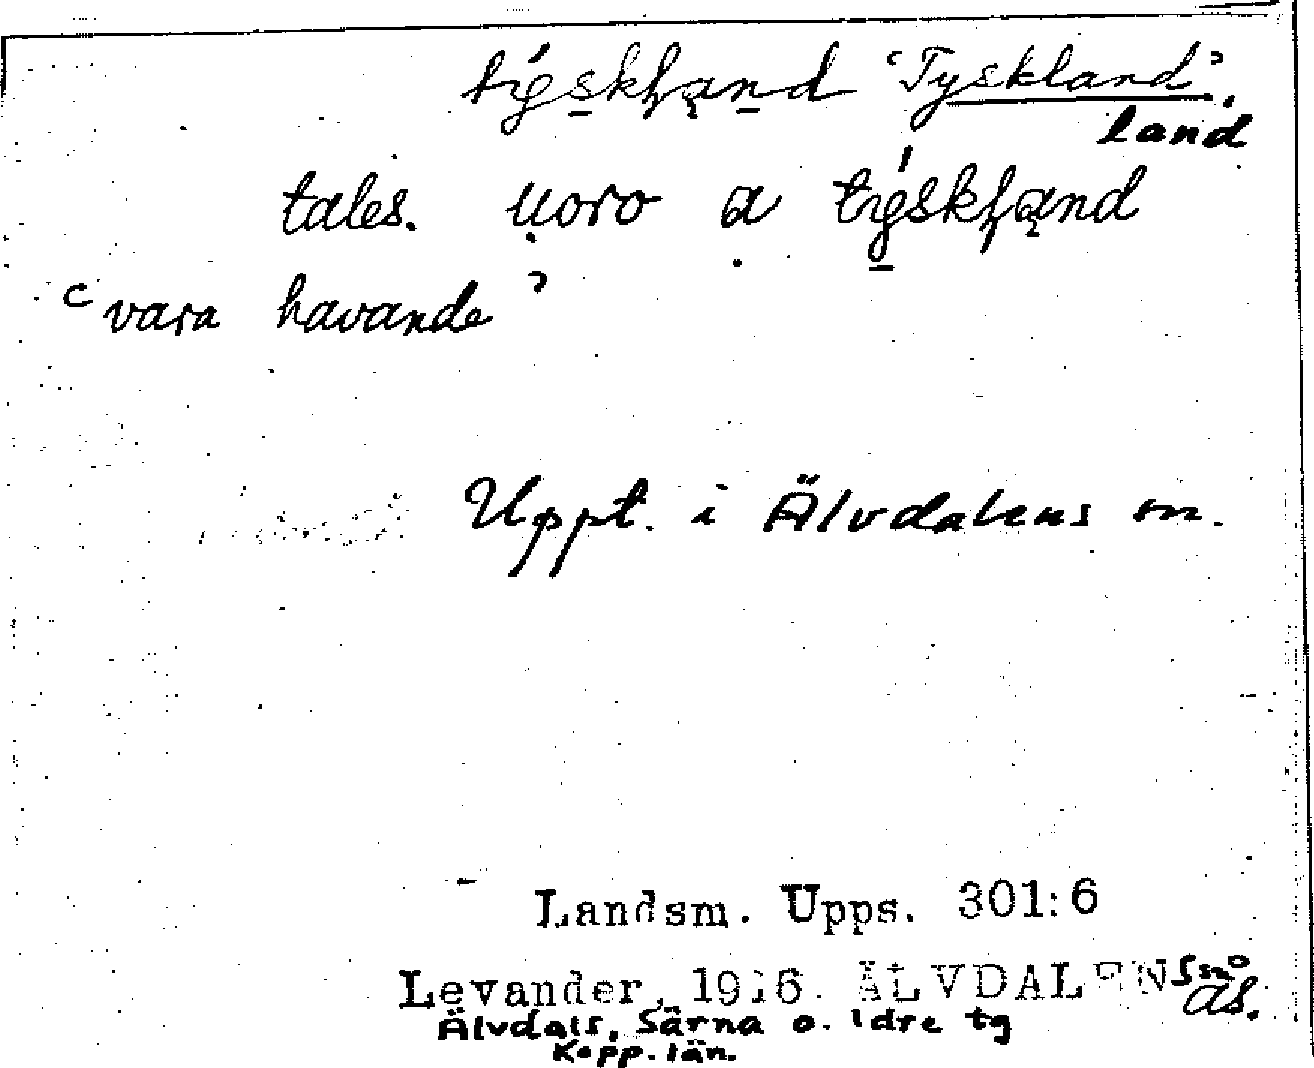 týskļąnd ‘Tyskland’.
land
tales. u̯oro ạ týskļąnd
‘vara havande’
Uppt. i Älvdalens sn.
Landsm. Upps. 301:6
Levander, 1916. ÄLVDALENS sno
ÄS.
Älvdals, Särna o. Idre tg
Kopp. län.